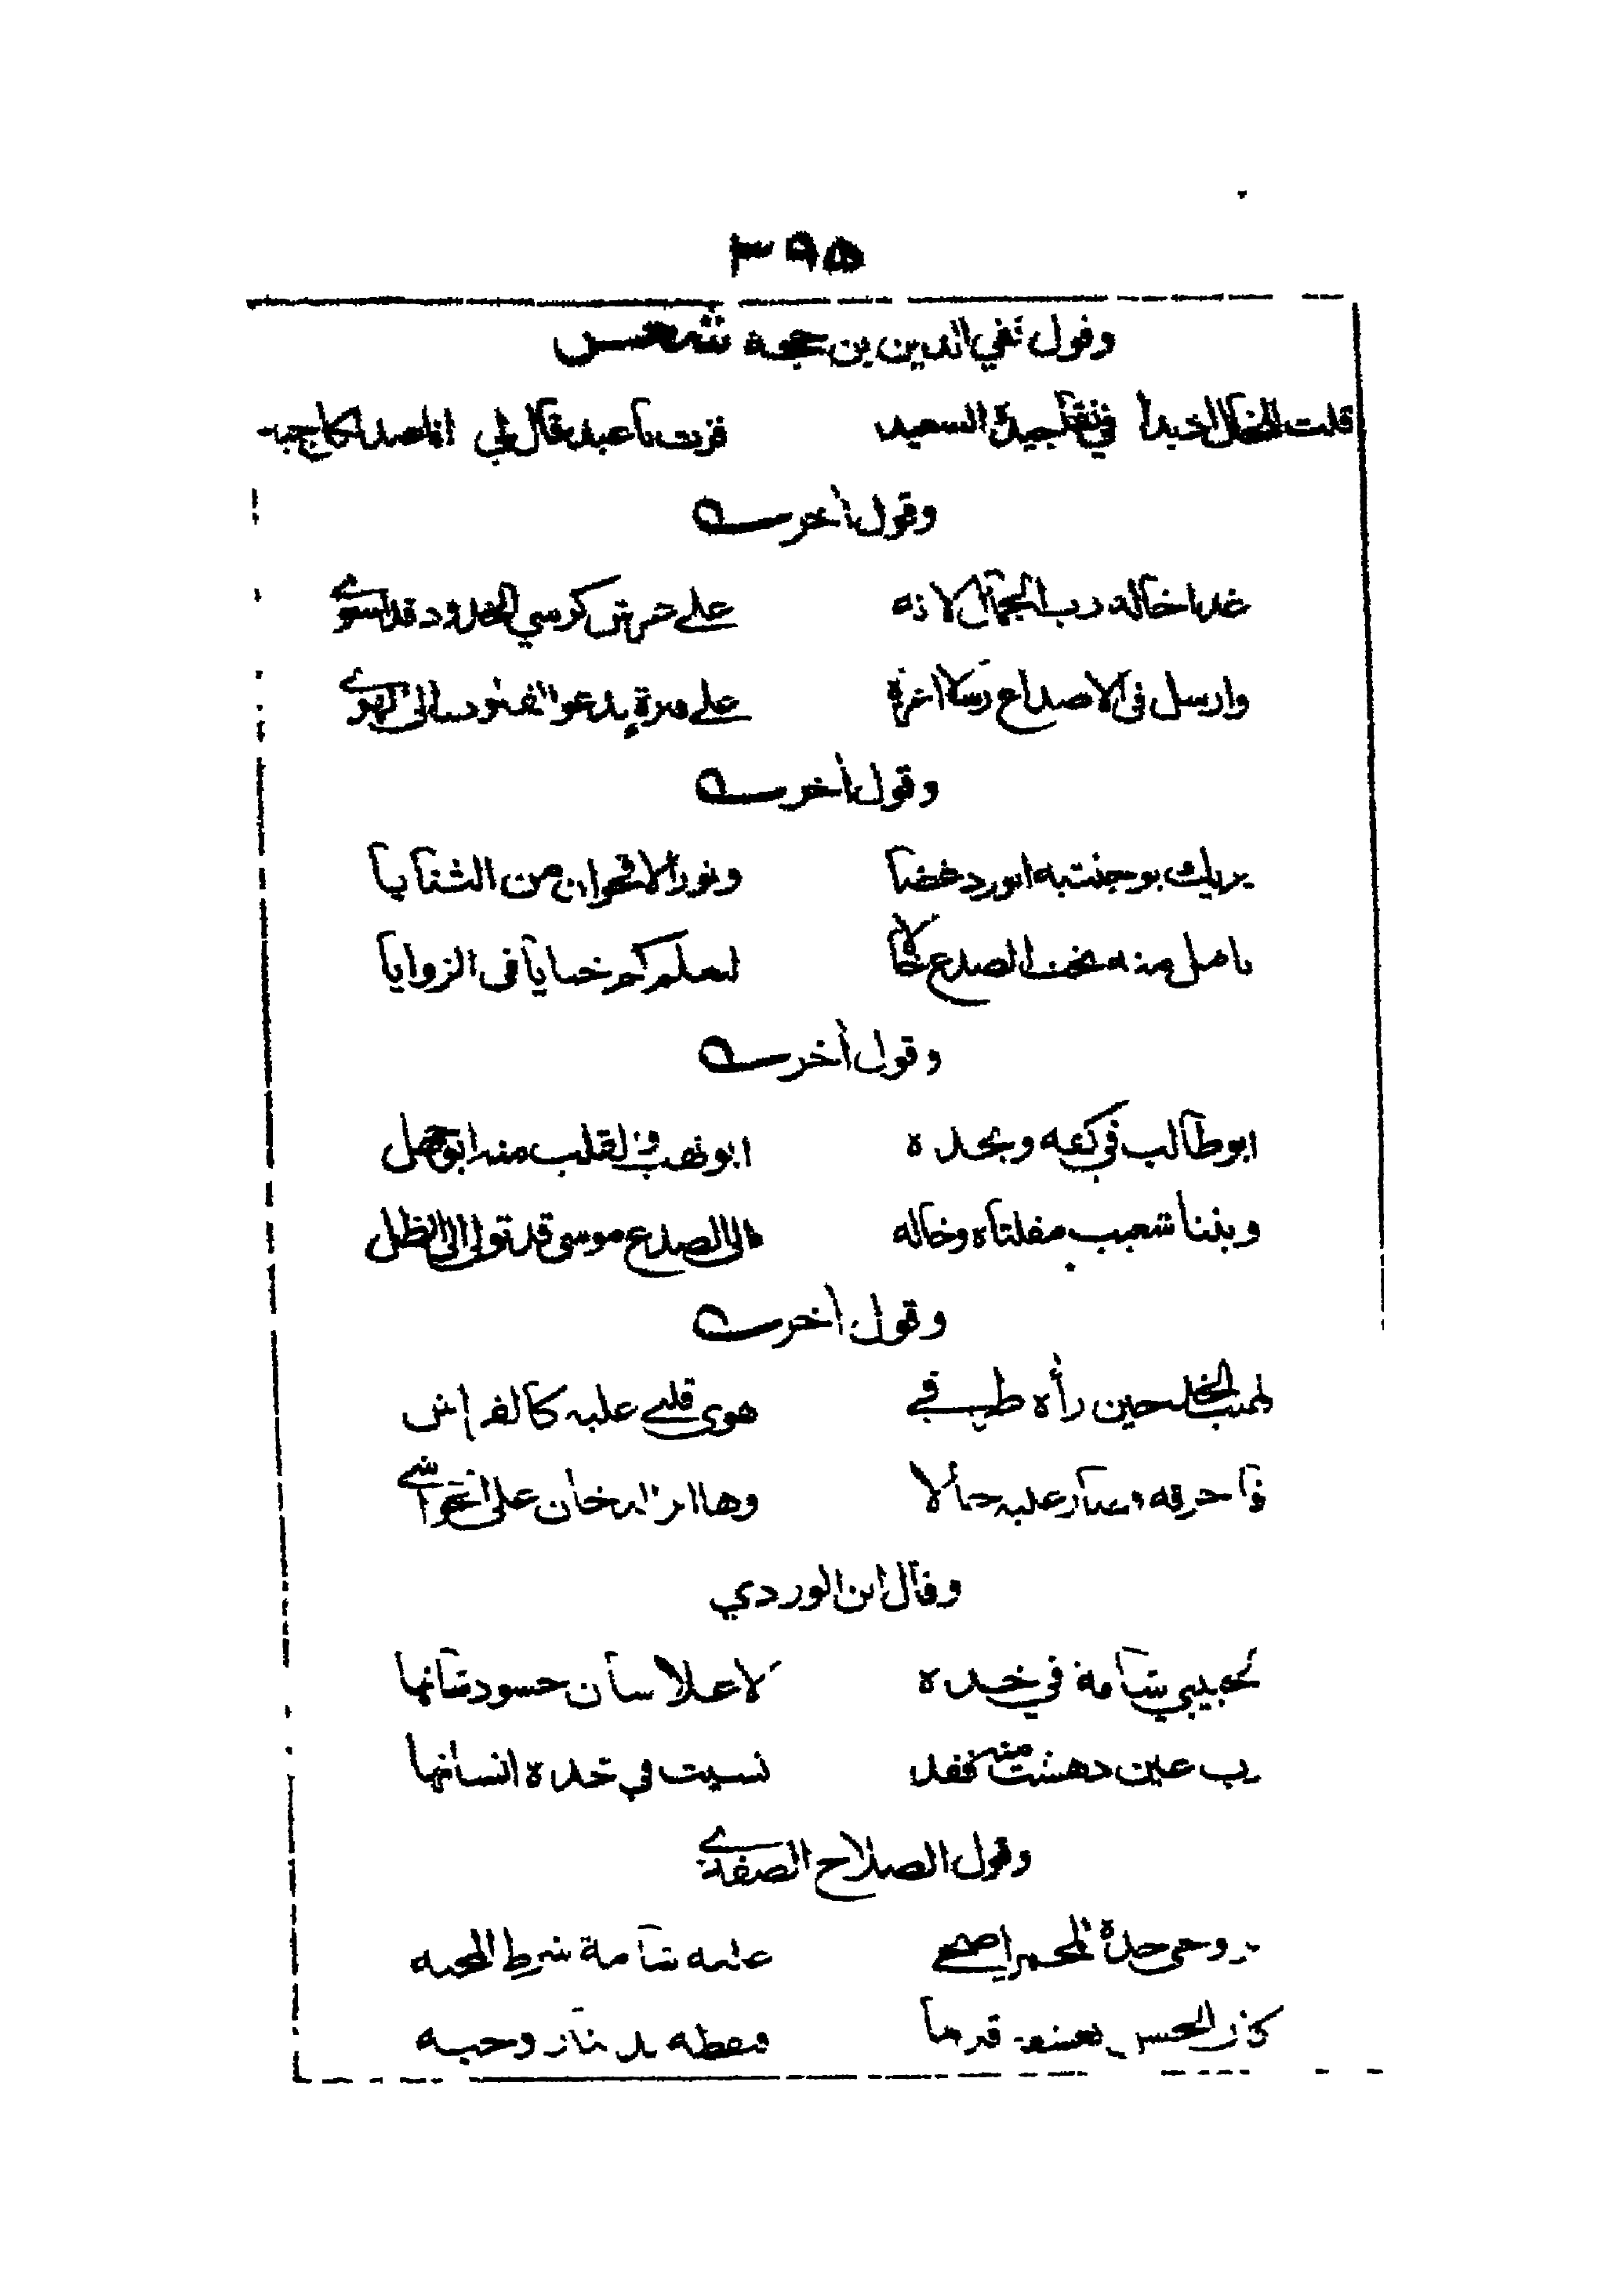 ٣٩٥
وقول تقي الدين بن حجة شعر
قلت للخال اذ بدا في نقا جيده السعيد فزت يا عبد قال لي انا
وقول اخر
غدا خاله رب الجمال لانه على عرش كرسي الخدود قد استوى
وارسل في الاصداغ رسلا اعزة على فترة يدعو القلوب الى الهوى
وقول اخر
يريك بوجنتيه الورد غضا ونور الاقحوان من الثنايا
تامل منه تحت الصدغ خالا لتعلم كم خبايا في الزوايا
وقول اخر
ابو طالب في كفه وبخده ابو لهب والقلب منه ابو جهل
وبنتا شعيب مقلتاه وخاله الى الصدغ موسى قد تولى الى الظل
وقول اخر
لهيب الخد حين رأه طرفي هوى قلبي عليه كالفراش
فاحرقه فصار عليه خالا وها اثر الدخان على الحواشي
وقال ابن الوردي
لحبيبي شامة في خده حسود شانها
رب عين دهشت منه فقد نسيت في خده انسانها
وقول الصلاح الصفدي
بروحي خده المحمر اضحى عليه شامة شرط المحبه
كان الحسن يعشقه قديما فنقطه بدينار وحبه